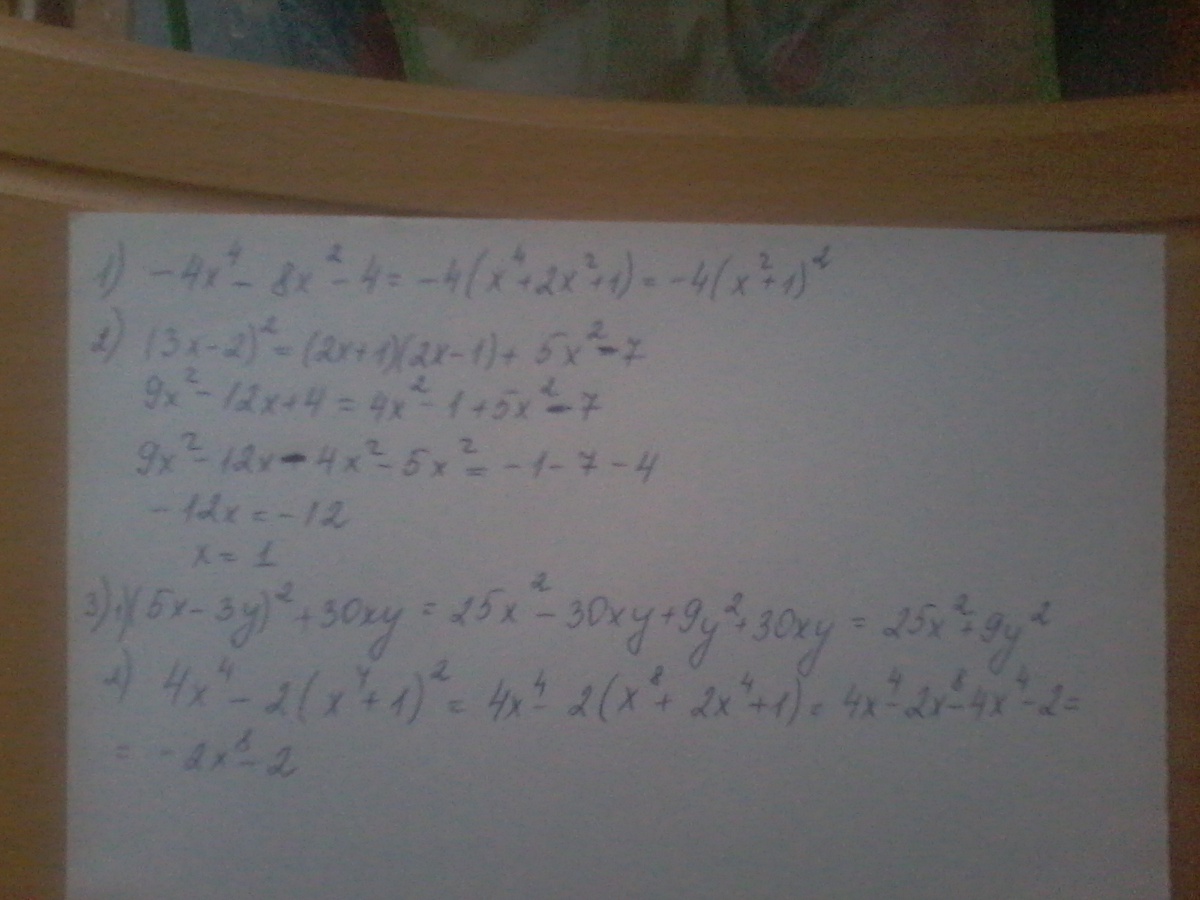 1) -4x⁴ - 8x² - 4 = -4(x⁴+2x²+1) = -4(x²+1)²
2) (3x-2)² = (2x+1)(2x-1) + 5x² - 7
9x² - 12x + 4 = 4x² - 1 + 5x² - 7
9x² - 12x - 4x² - 5x² = -1 - 7 - 4
-12x = -12
x = 1
3) 1)(5x - 3y)² + 30xy = 25x² - 30xy + 9y² + 30xy = 25x² + 9y²
2) 4x⁴ - 2(x⁴+1)² = 4x⁴ - 2(x⁸ + 2x⁴+1) = 4x⁴ - 2x⁸ - 4x⁴ - 2 =
= -2x⁸ - 2